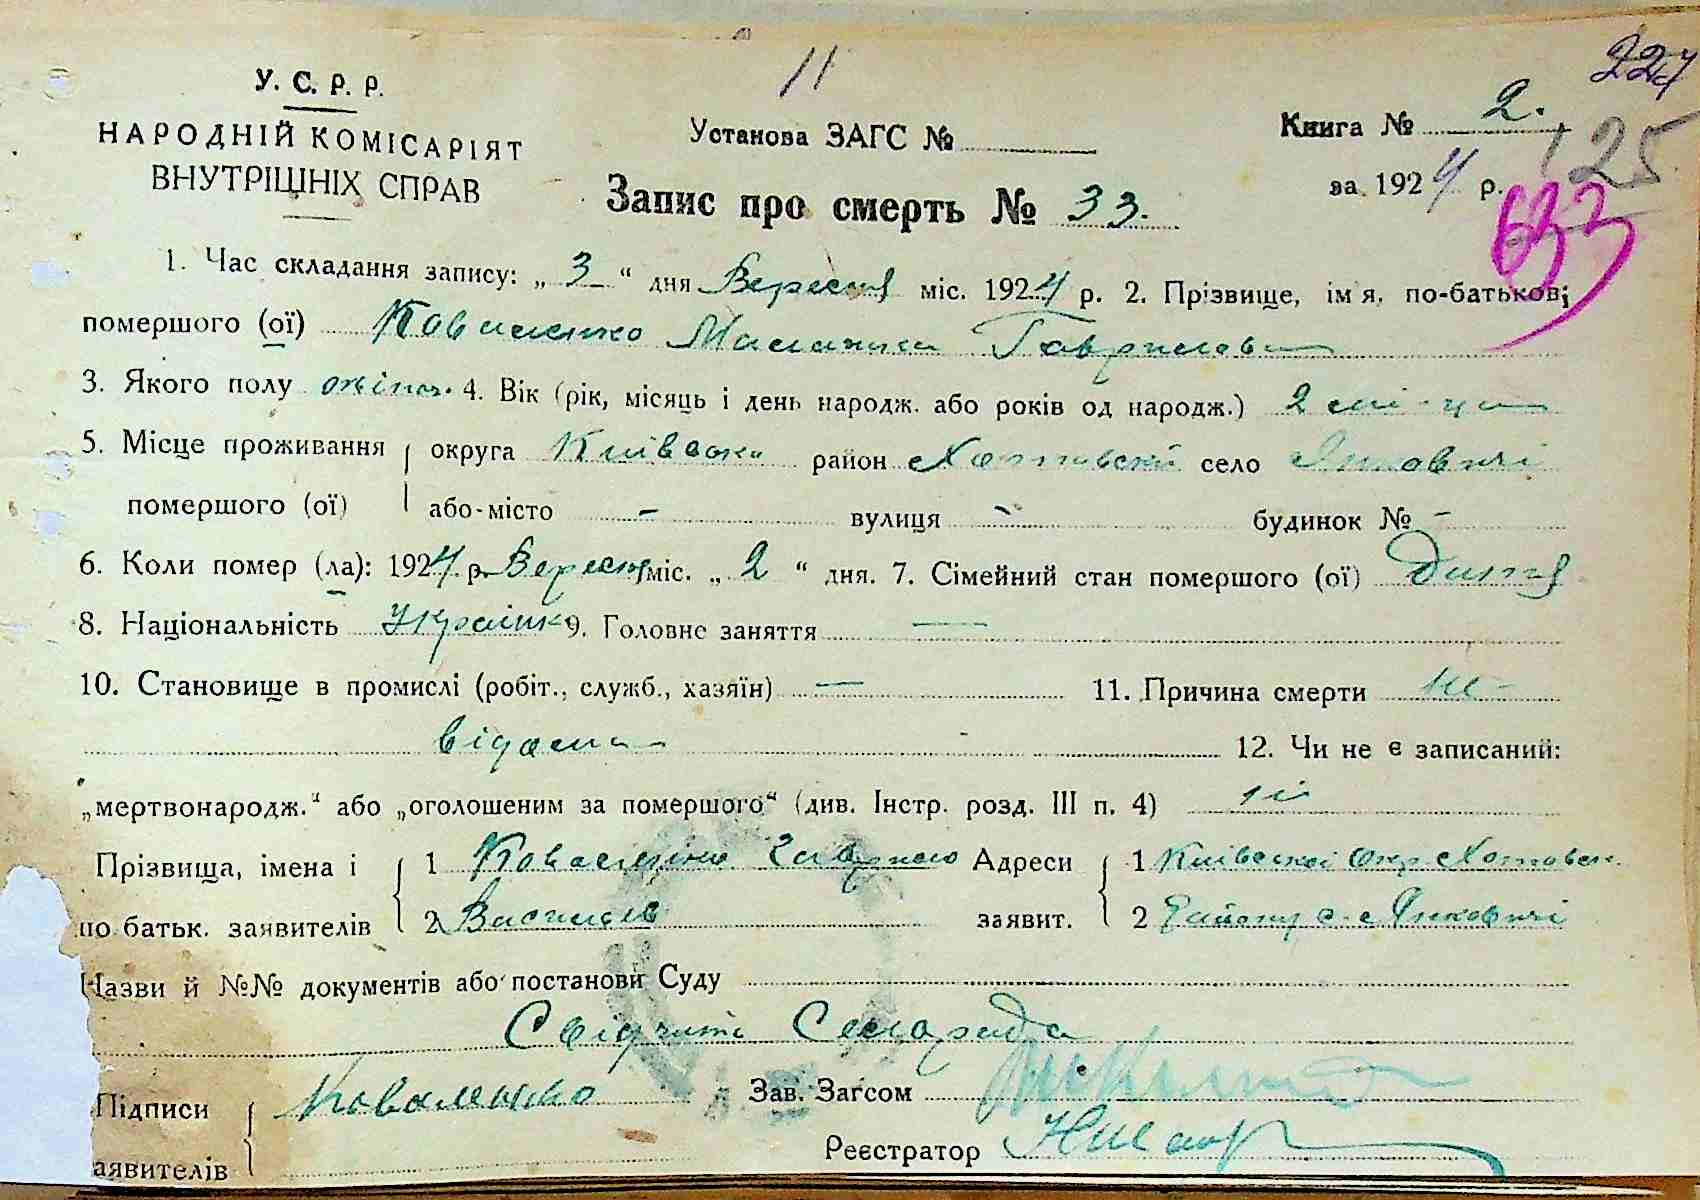 227
11
У. С. Р. Р.
НАРОДНІЙ КОМІСАРІЯТ
ВНУТРІШНІХ СПРАВ
Установа ЗАГС №
Книга № 2.
125
за 1924 р.
633
Запис про смерть № 33.
1. Час складання запису: „ 3 “ дня Вересня міс. 1924 р. 2. Прізвище, ім'я, по-батькові
помершого (ої) Коваленко Гаврилова
3. Якого полу жіноч. 4. Вік (рік, місяць і день народж. або років од народж.) 2
5. Місце проживання округа Київська район Хотовский село Янковичі
помершого (ої) або-місто - вулиця - будинок № -
6. Коли помер (ла): 1924 р. Вересня міс. „ 2 “ дня. 7. Сімейний стан помершого (ої) Дитя
8. Національність Українка 9. Головне заняття —
10. Становище в промислі (робіт., служб., хазяїн) — 11. Причина смерти не-
відома 12. Чи не є записаний:
„мертвонародж.“ або „оголошеним за помершого“ (див. Інстр. розд. III п. 4) ні
Прізвища, імена і 1 Адреси 1 Київської Окр. Хотовськ.
по батьк. заявителів 2 Васильов заявит. 2 Району с. Янковичі
Назви й №№ документів або постанови Суду
Сельрада
Підписи Коваленко Зав. Загсом
аявителів Реєстратор